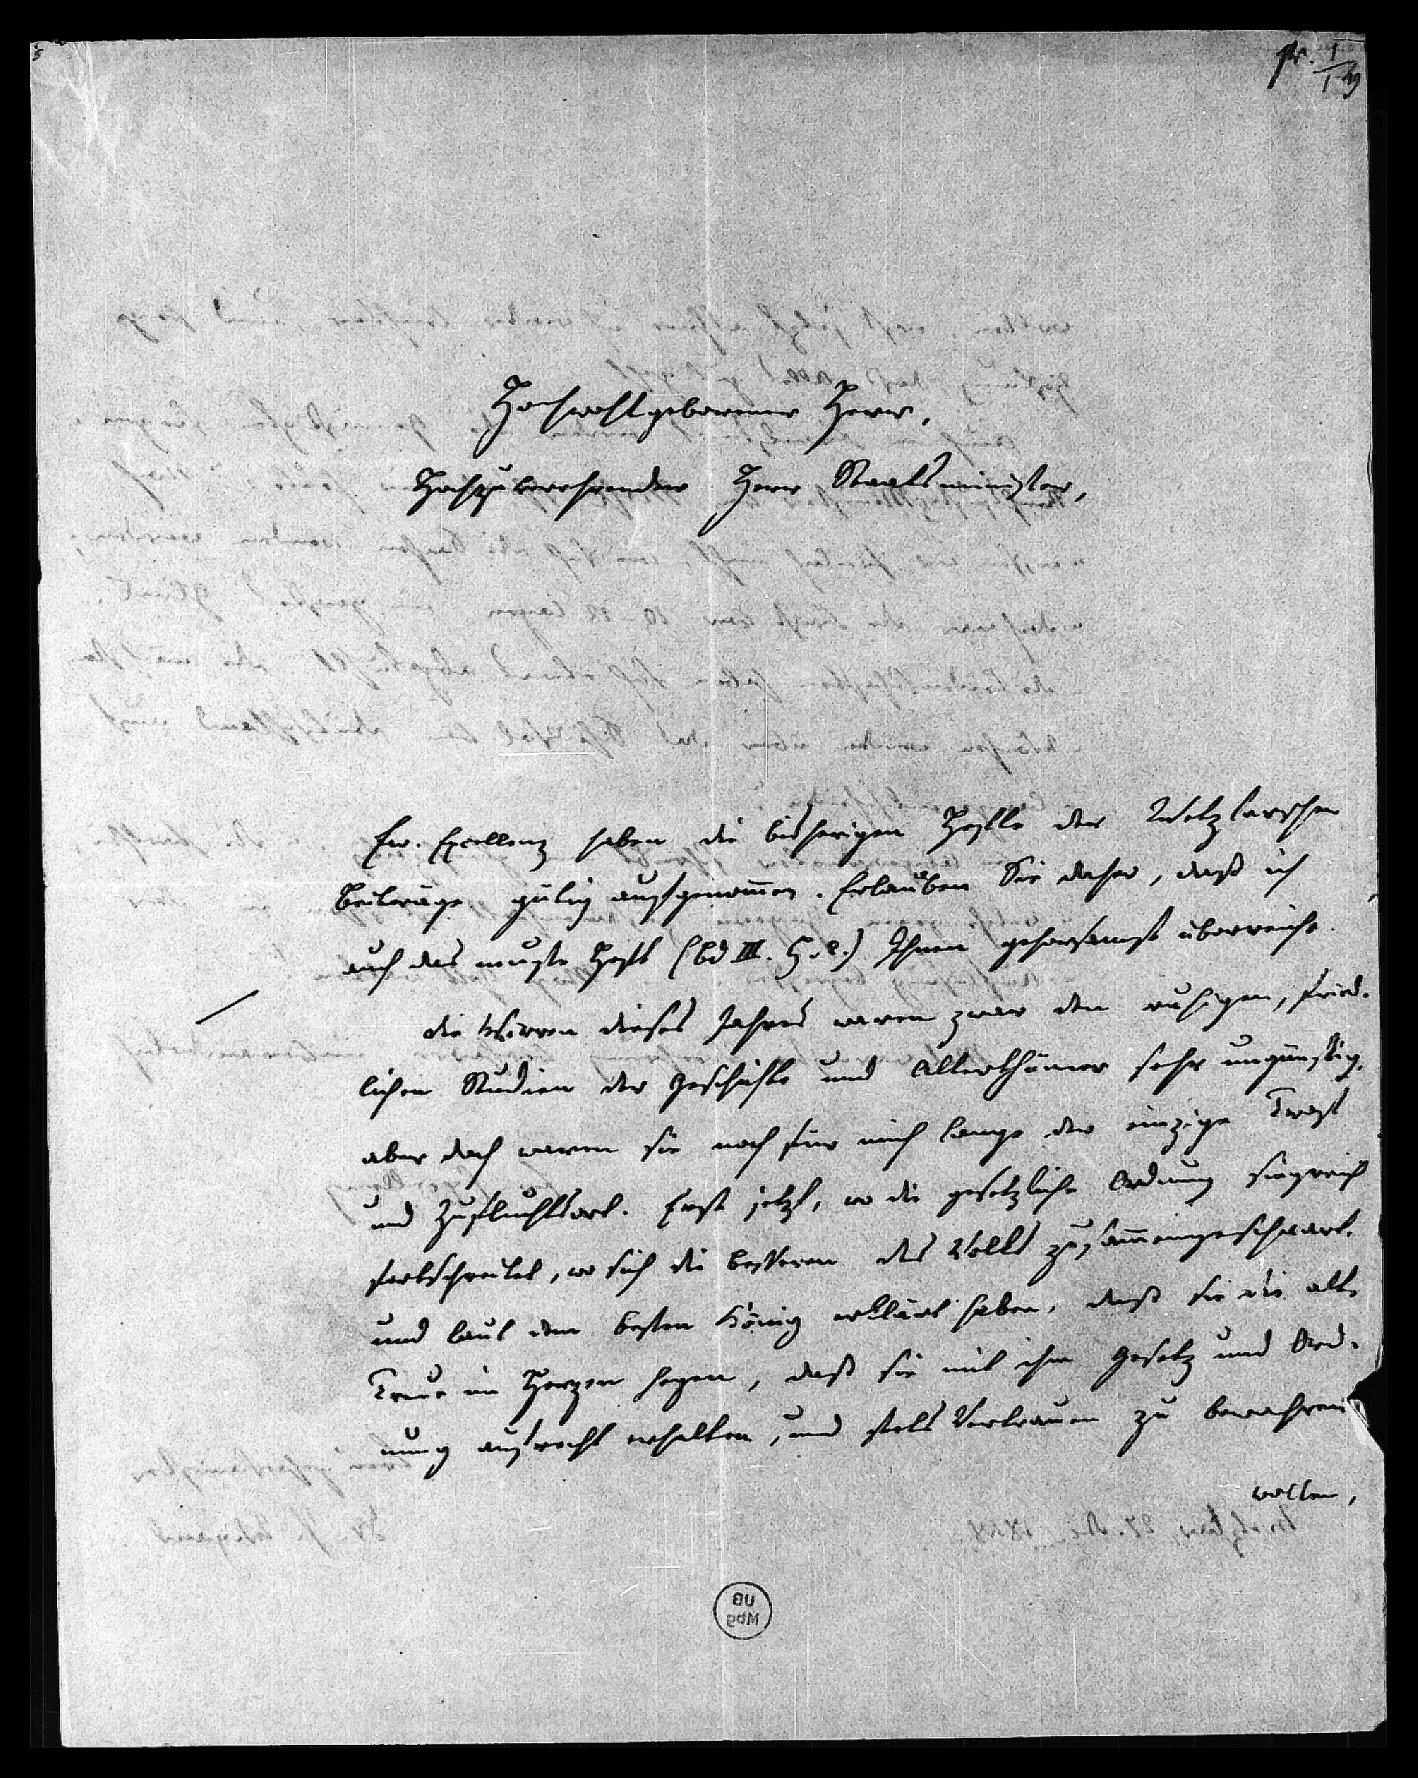 pr. 1/1 49
Hochwohlgeborener Herr,
Hochzuverehrender Herr Staatsminister,
Ew. Excellenz haben die bisherigen Hefte der Wetzlarschen
Beiträge gütig aufgenommen. Erlauben Sie daher, daß ich
auch das neuste Heft (Bd III. H. 2.) Ihnen gehorsamst überreiche.
Die Wirren dieses Jahres waren zwar den ruhigen, fried-
lichen Studien der Geschichte und Alterthümer sehr ungünstig,
aber doch waren sie noch für mich lange der einzige Trost
und Zufluchtsort. Erst jetzt, wo die gesetzliche Ordnung siegreich
fortschreitet, wo sich die Besseren des Volks zusammengeschaart,
und laut dem besten König erklärt haben, daß sie die alte
Treue im Herzen hegen, daß sie mit ihm Gesetz und Ord-
nung aufrecht erhalten, und stets Vertrauen zu bewahren
wollen,
UB
Mbg